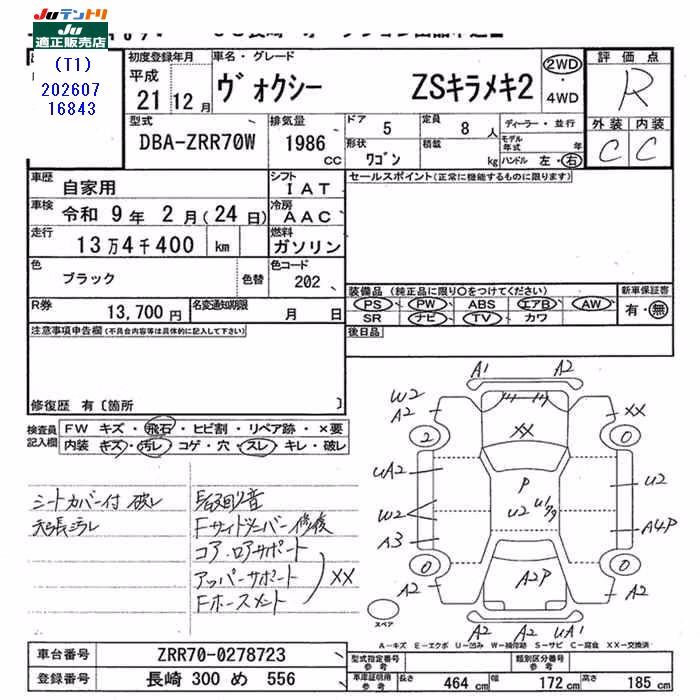 JUテントリ
JU
適正販売店
(T1)
202607
16843
初度登録年月
平成
21 12 月
車名・グレード
ヴォクシー ZSキラメキ2
2WD
・
4WD
評価点
R
外装 内装
C C
型式
DBA-ZRR70W
排気量
1986 cc
ドア 5
定員 8 人
形状 ワゴン
積載 kg
ディーラー・並行
モデル年式 年
ハンドル 左・右
車歴 自家用
シフト IAT
セールスポイント(正常に機能するものに限ります)
車検 令和 9 年 2 月(24 日)
冷房 AAC
走行 13 万 4 千 400 km
燃料 ガソリン
色 ブラック 色替
色コード 202
装備品(純正品に限り○をつけてください)
新車保証書
PS PW ABS エアB AW
有・無
SR ナビ TV カワ
R券 13,700 円
名変通知期限 月 日
後日品
注意事項申告欄(不具合内容等は具体的に記入して下さい)
修復歴 有〔箇所 〕
検査員
記入欄
FW キズ・飛石・ヒビ割・リペア跡・×要
内装 キズ・汚レ・コゲ・穴・スレ・キレ・破レ
シートカバー付 破レ
天張汚レ
Fサイドメンバー修復
コア.ロアサポート
アッパーサポート
Fホースメント
XX
A1 A2
W2
A2
XX
2
0
XX
UA2
P
U2
U2
W2
A3
A4P
0
0
A2
A2P
A2
スペア
A2 A2 UA1
A-キズ E-エクボ U-凹み W-補修跡 S-サビ C-腐食 XX-交換済
車台番号 ZRR70-0278723
登録番号 長崎 300 め 556
型式指定番号
参考
類別区分番号
参考
車庫証明用
参考
長さ 464 cm
幅 172 cm
高さ 185 cm